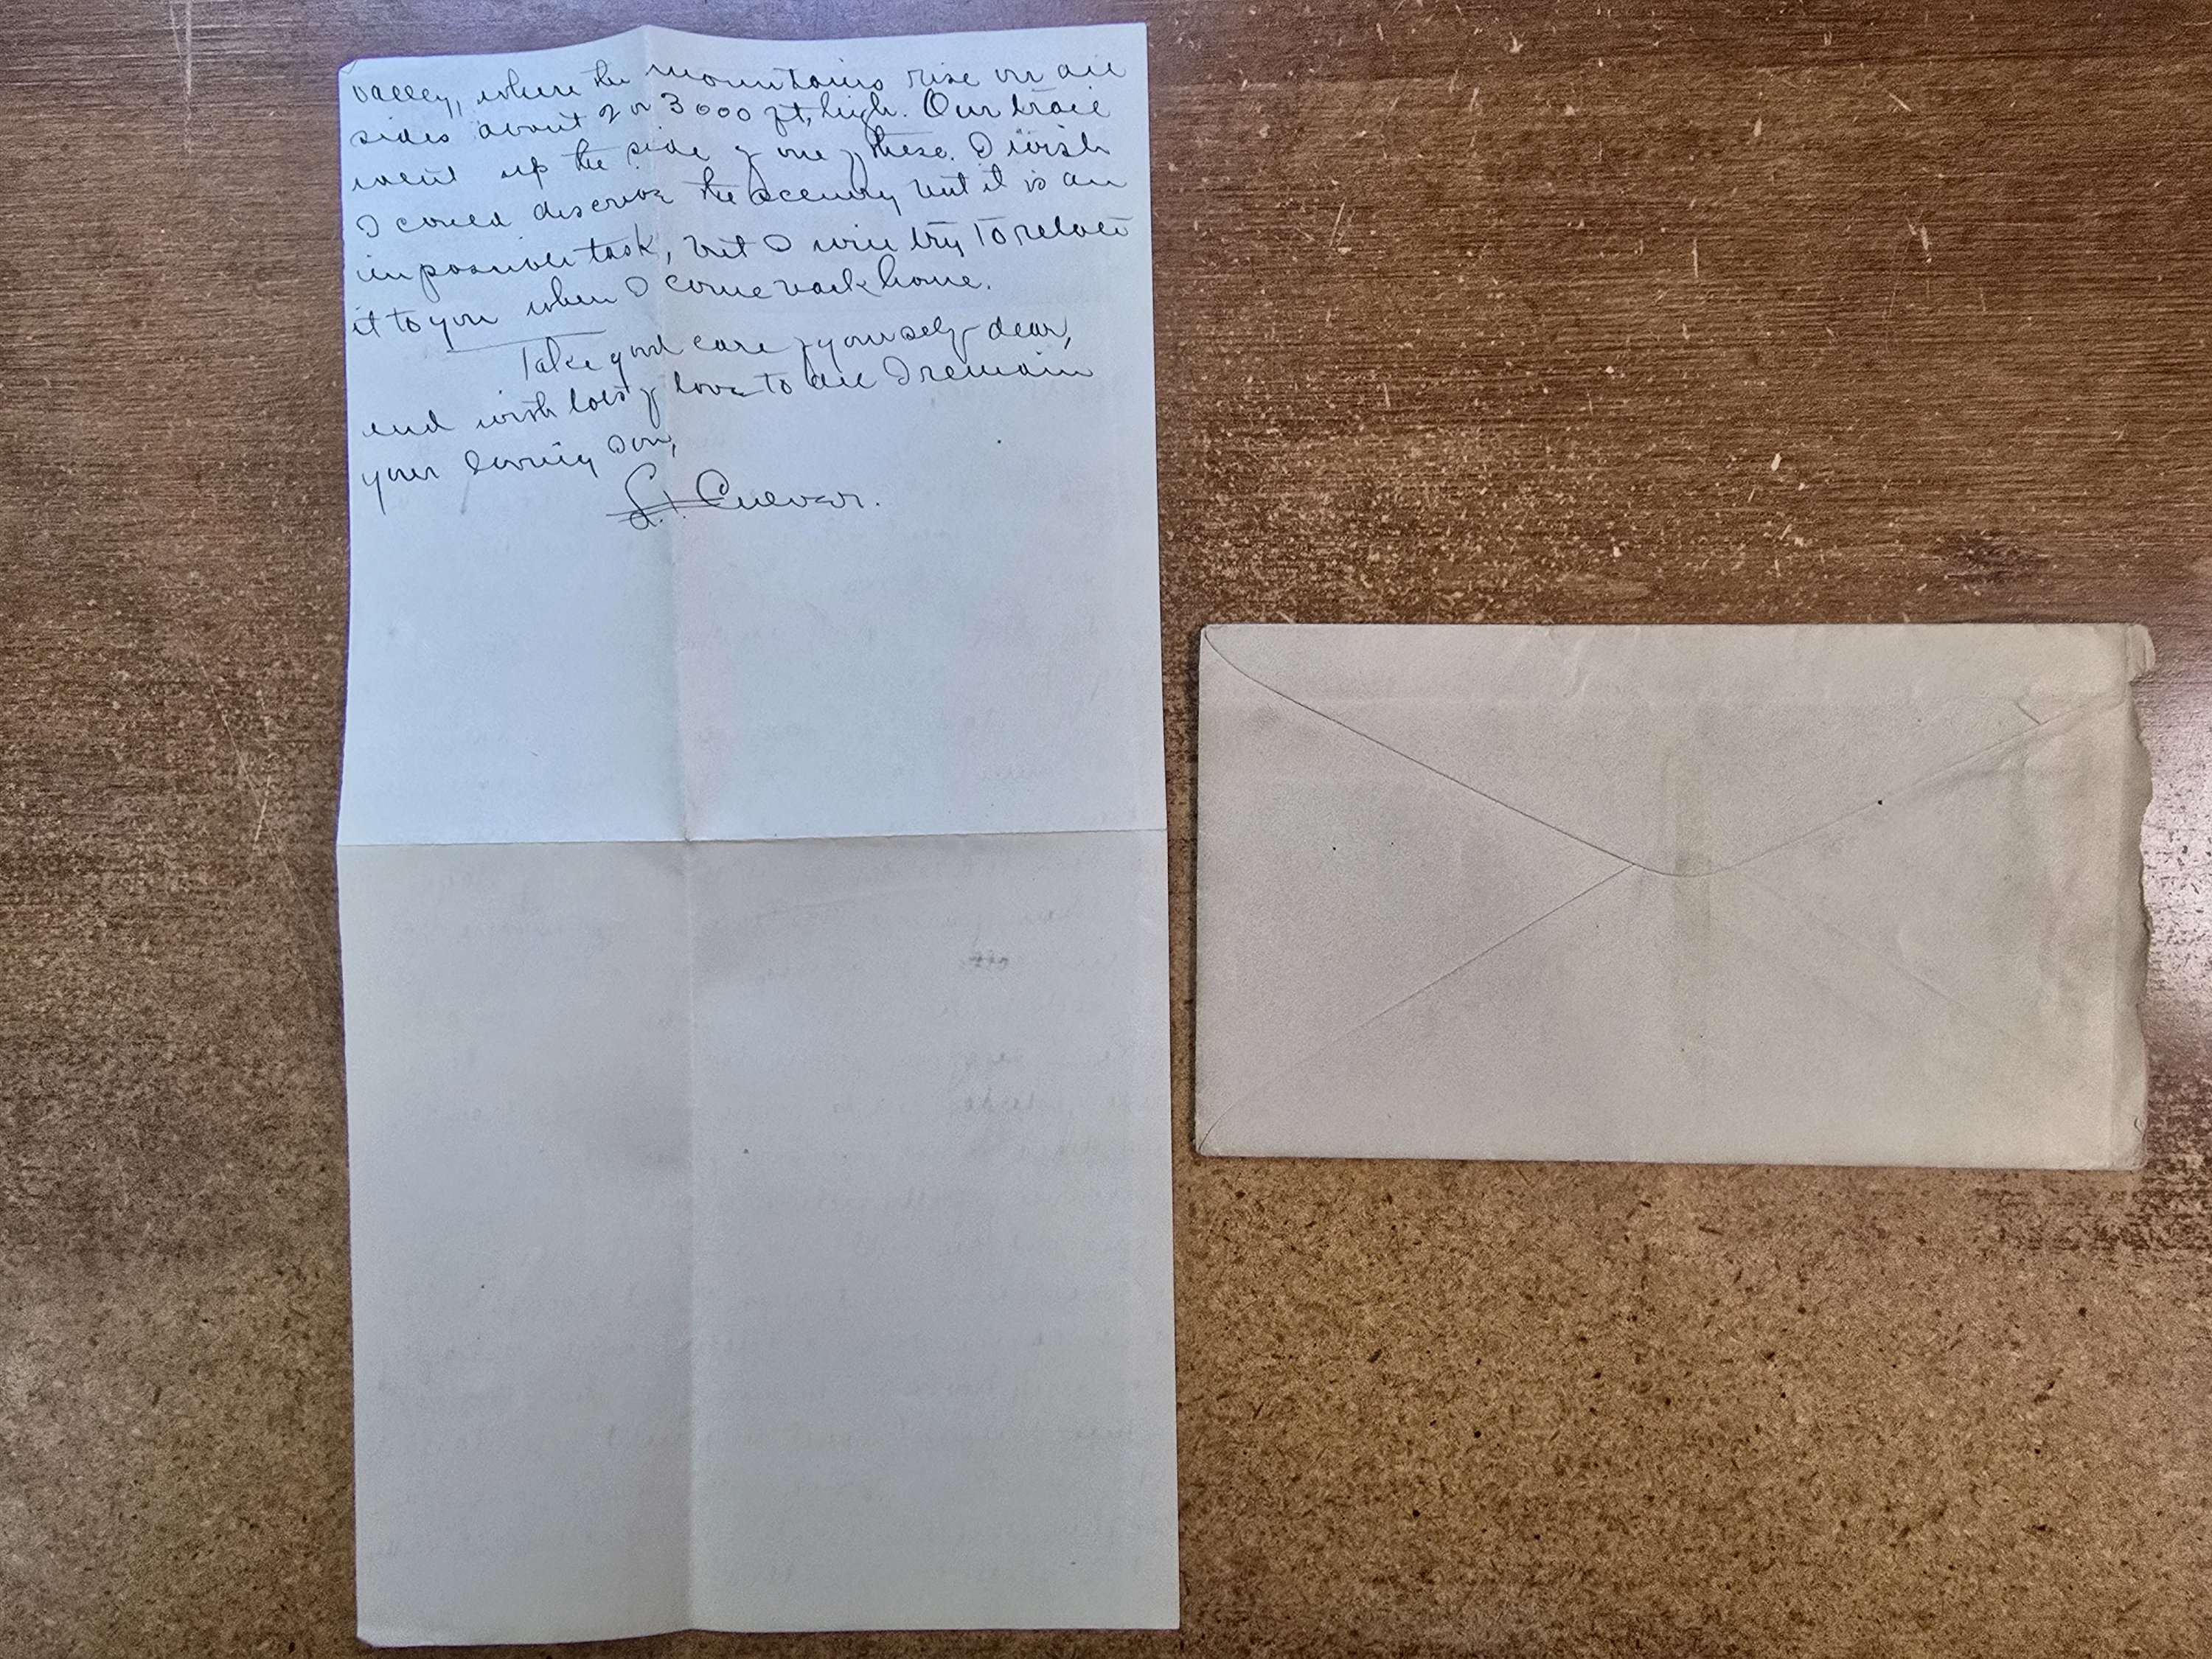 valley, where the mountains rise on all
sides about 2 or 3000 ft, high. Our trail
went up the side of one of these. I wish
I could describe the scenery but it is an
impossible task, but I will try to relate
it to you when I come back home.
Take good care of yourself dear,
and with lots of love to all I remain
your loving son,